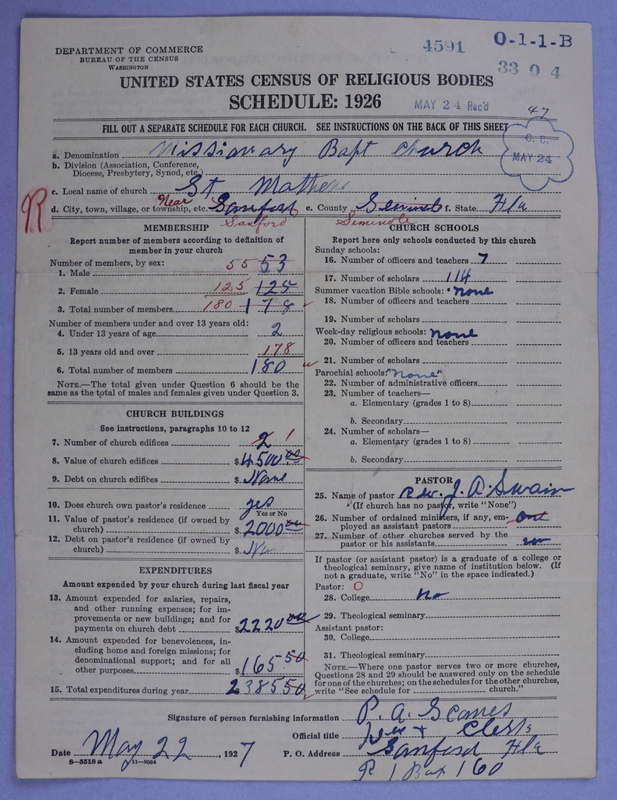 4591 O-1-1-B
DEPARTMENT OF COMMERCE
BUREAU OF THE CENSUS
WASHINGTON
3304
UNITED STATES CENSUS OF RELIGIOUS BODIES
SCHEDULE: 1926
MAY 24 Rec'd
47
FILL OUT A SEPARATE SCHEDULE FOR EACH CHURCH. SEE INSTRUCTIONS ON THE BACK OF THIS SHEET
C. C.
MAY 24
a. Denomination Missionary Bapt Church
b. Division (Association, Conference, Diocese, Presbytery, Synod, etc.)
c. Local name of church St. Mathews
d. City, town, village, or township, etc. Near Sanford e. County Seminole f. State Fla
R Sanford Seminole
MEMBERSHIP
Report number of members according to definition of member in your church
Number of members, by sex:
1. Male 55 53
2. Female 125 125
3. Total number of members 180 178
Number of members under and over 13 years old:
4. Under 13 years of age 2
5. 13 years old and over 178
6. Total number of members 180
NOTE.—The total given under Question 6 should be the same as the total of males and females given under Question 3.
CHURCH BUILDINGS
See instructions, paragraphs 10 to 12
7. Number of church edifices 2 1
8. Value of church edifices $4500.00
9. Debt on church edifices $ None
10. Does church own pastor's residence yes
Yes or No
11. Value of pastor's residence (if owned by church) $2000.00
12. Debt on pastor's residence (if owned by church) $
EXPENDITURES
Amount expended by your church during last fiscal year
13. Amount expended for salaries, repairs, and other running expenses; for improvements or new buildings; and for payments on church debt $2220.00
14. Amount expended for benevolences, including home and foreign missions; for denominational support; and for all other purposes $165.50
15. Total expenditures during year 2385.50
CHURCH SCHOOLS
Report here only schools conducted by this church
Sunday schools:
16. Number of officers and teachers 7
17. Number of scholars 114
Summer vacation Bible schools: None
18. Number of officers and teachers
19. Number of scholars
Week-day religious schools: None
20. Number of officers and teachers
21. Number of scholars
Parochial schools: "None"
22. Number of administrative officers
23. Number of teachers—
a. Elementary (grades 1 to 8)
b. Secondary
24. Number of scholars—
a. Elementary (grades 1 to 8)
b. Secondary
PASTOR
25. Name of pastor Rev. J. A. Swain
(If church has no pastor, write "None")
26. Number of ordained ministers, if any, employed as assistant pastors one
27. Number of other churches served by the pastor or his assistants
If pastor (or assistant pastor) is a graduate of a college or theological seminary, give name of institution below. (If not a graduate, write "No" in the space indicated.)
Pastor: O
28. College No
29. Theological seminary
Assistant pastor:
30. College
31. Theological seminary
NOTE.—Where one pastor serves two or more churches, Questions 28 and 29 should be answered only on the schedule for one of the churches; on the schedules for the other churches, write "See schedule for church."
Signature of person furnishing information P. A.
Official title Clerk
Date May 22, 1927 P. O. Address Sanford Fla
R 1 Box 160
8—5518 a 11—9034